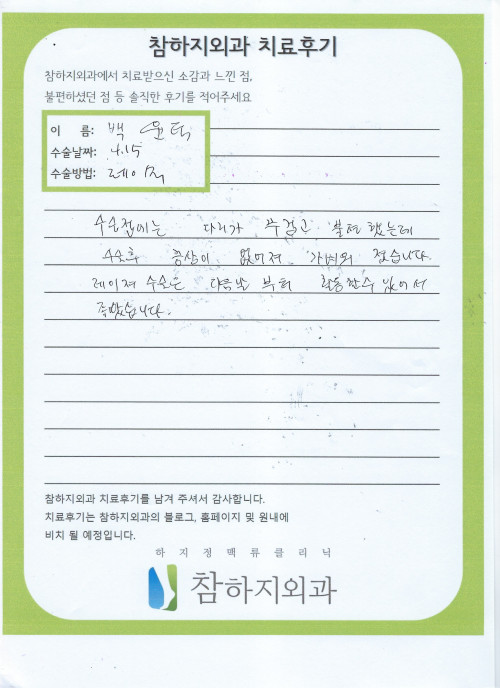 참하지외과 치료후기
참하지외과에서 치료받으신 소감과 느낀 점,
불편하셨던 점 등 솔직한 후기를 적어주세요
이 름: 백
수술날짜: 4.15
수술방법: 레이저
수술전에는 다리가 무겁고 불편했는데
수술후 증상이 없어져 졌습니다.
레이져 수술은 다음날 부터 활동할수 있어서
좋았습니다.
참하지외과 치료후기를 남겨 주셔서 감사합니다.
치료후기는 참하지외과의 블로그, 홈페이지 및 원내에
비치 될 예정입니다.
하지정맥류클리닉
참하지외과